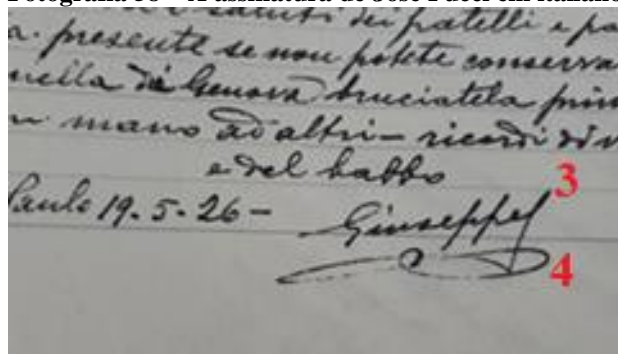 Fotografia 38 – A assinatura de José Pucci em italiano
saluti dei fratelli e pa
a. presente se non potete conserva
nella di Genova bruciatela prim
mano ad altri – ricordi di
e del babbo
3
Paulo 19. 5. 26 –
Giuseppe
4